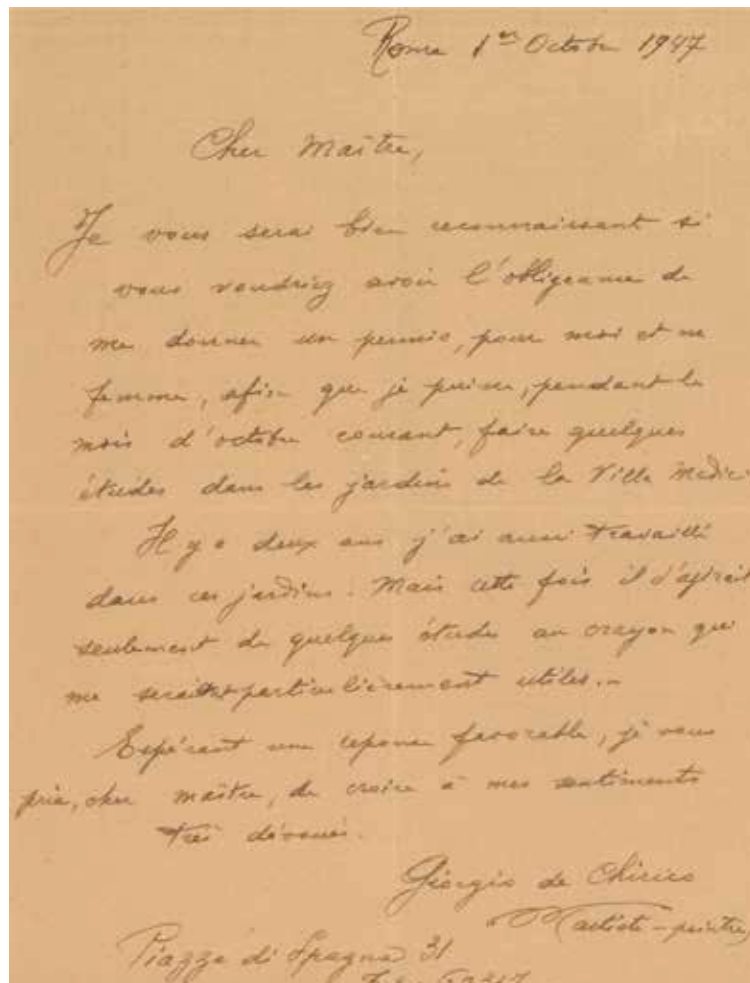 Rome 1er Octobre 1947
Cher Maître,
Je vous serai bien reconnaissant si
vous voudriez avoir l'obligeance de
me donner un permis, pour moi et ma
femme, afin que je puisse, pendant le
mois d'octobre courant, faire quelques
études dans les jardins de la Villa Medici
Il y a deux ans j'ai aussi travaillé
dans ces jardins. Mais cette fois il s'agirait
seulement de quelques études au crayon qui
me seraient particulièrement utiles..
Espérant une reponse favorable, je vous
prie, cher maître, de croire à mes sentiments
très dévoués.
Giorgio de Chirico
(artiste-peintre)
Piazza di Spagna 31